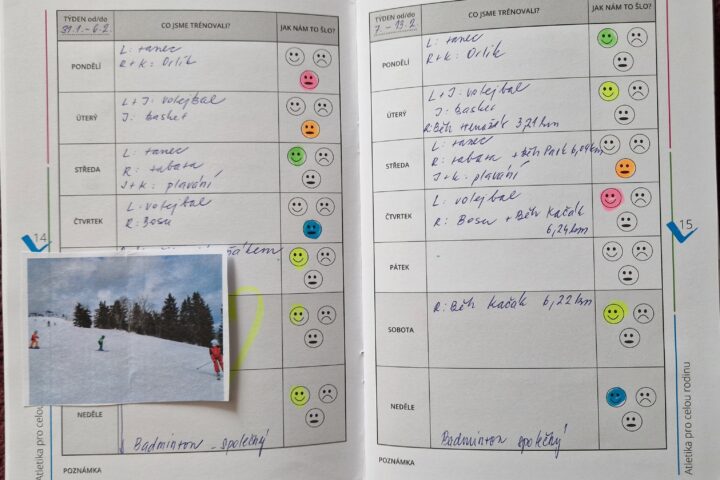 TÝDEN od/do
31.1. - 6.2.
CO JSME TRÉNOVALI?
JAK NÁM TO ŠLO?
PONDĚLÍ
L: tanec
R+K: Orlík
ÚTERÝ
L+J: volejbal
J: basket
STŘEDA
L: tanec
R: tabata
J+K: plavání
ČTVRTEK
L: volejbal
R: Bosu
NEDĚLE
Badminton - společný
POZNÁMKA
14
Atletika pro celou
TÝDEN od/do
7. - 13.2.
CO JSME TRÉNOVALI?
JAK NÁM TO ŠLO?
PONDĚLÍ
L: tanec
R+K: Orlík
ÚTERÝ
L+J: volejbal
J: basket
R: Běh 3,21 km
STŘEDA
L: tanec
R: tabata + běh Park 6,04km
J+K: plavání
ČTVRTEK
L: volejbal
R: Bosu + Běh Kačák
6,24km
PÁTEK
SOBOTA
R: Běh Kačák 6,22 km
NEDĚLE
Badminton společný
POZNÁMKA
15
Atletika pro celou rodinu